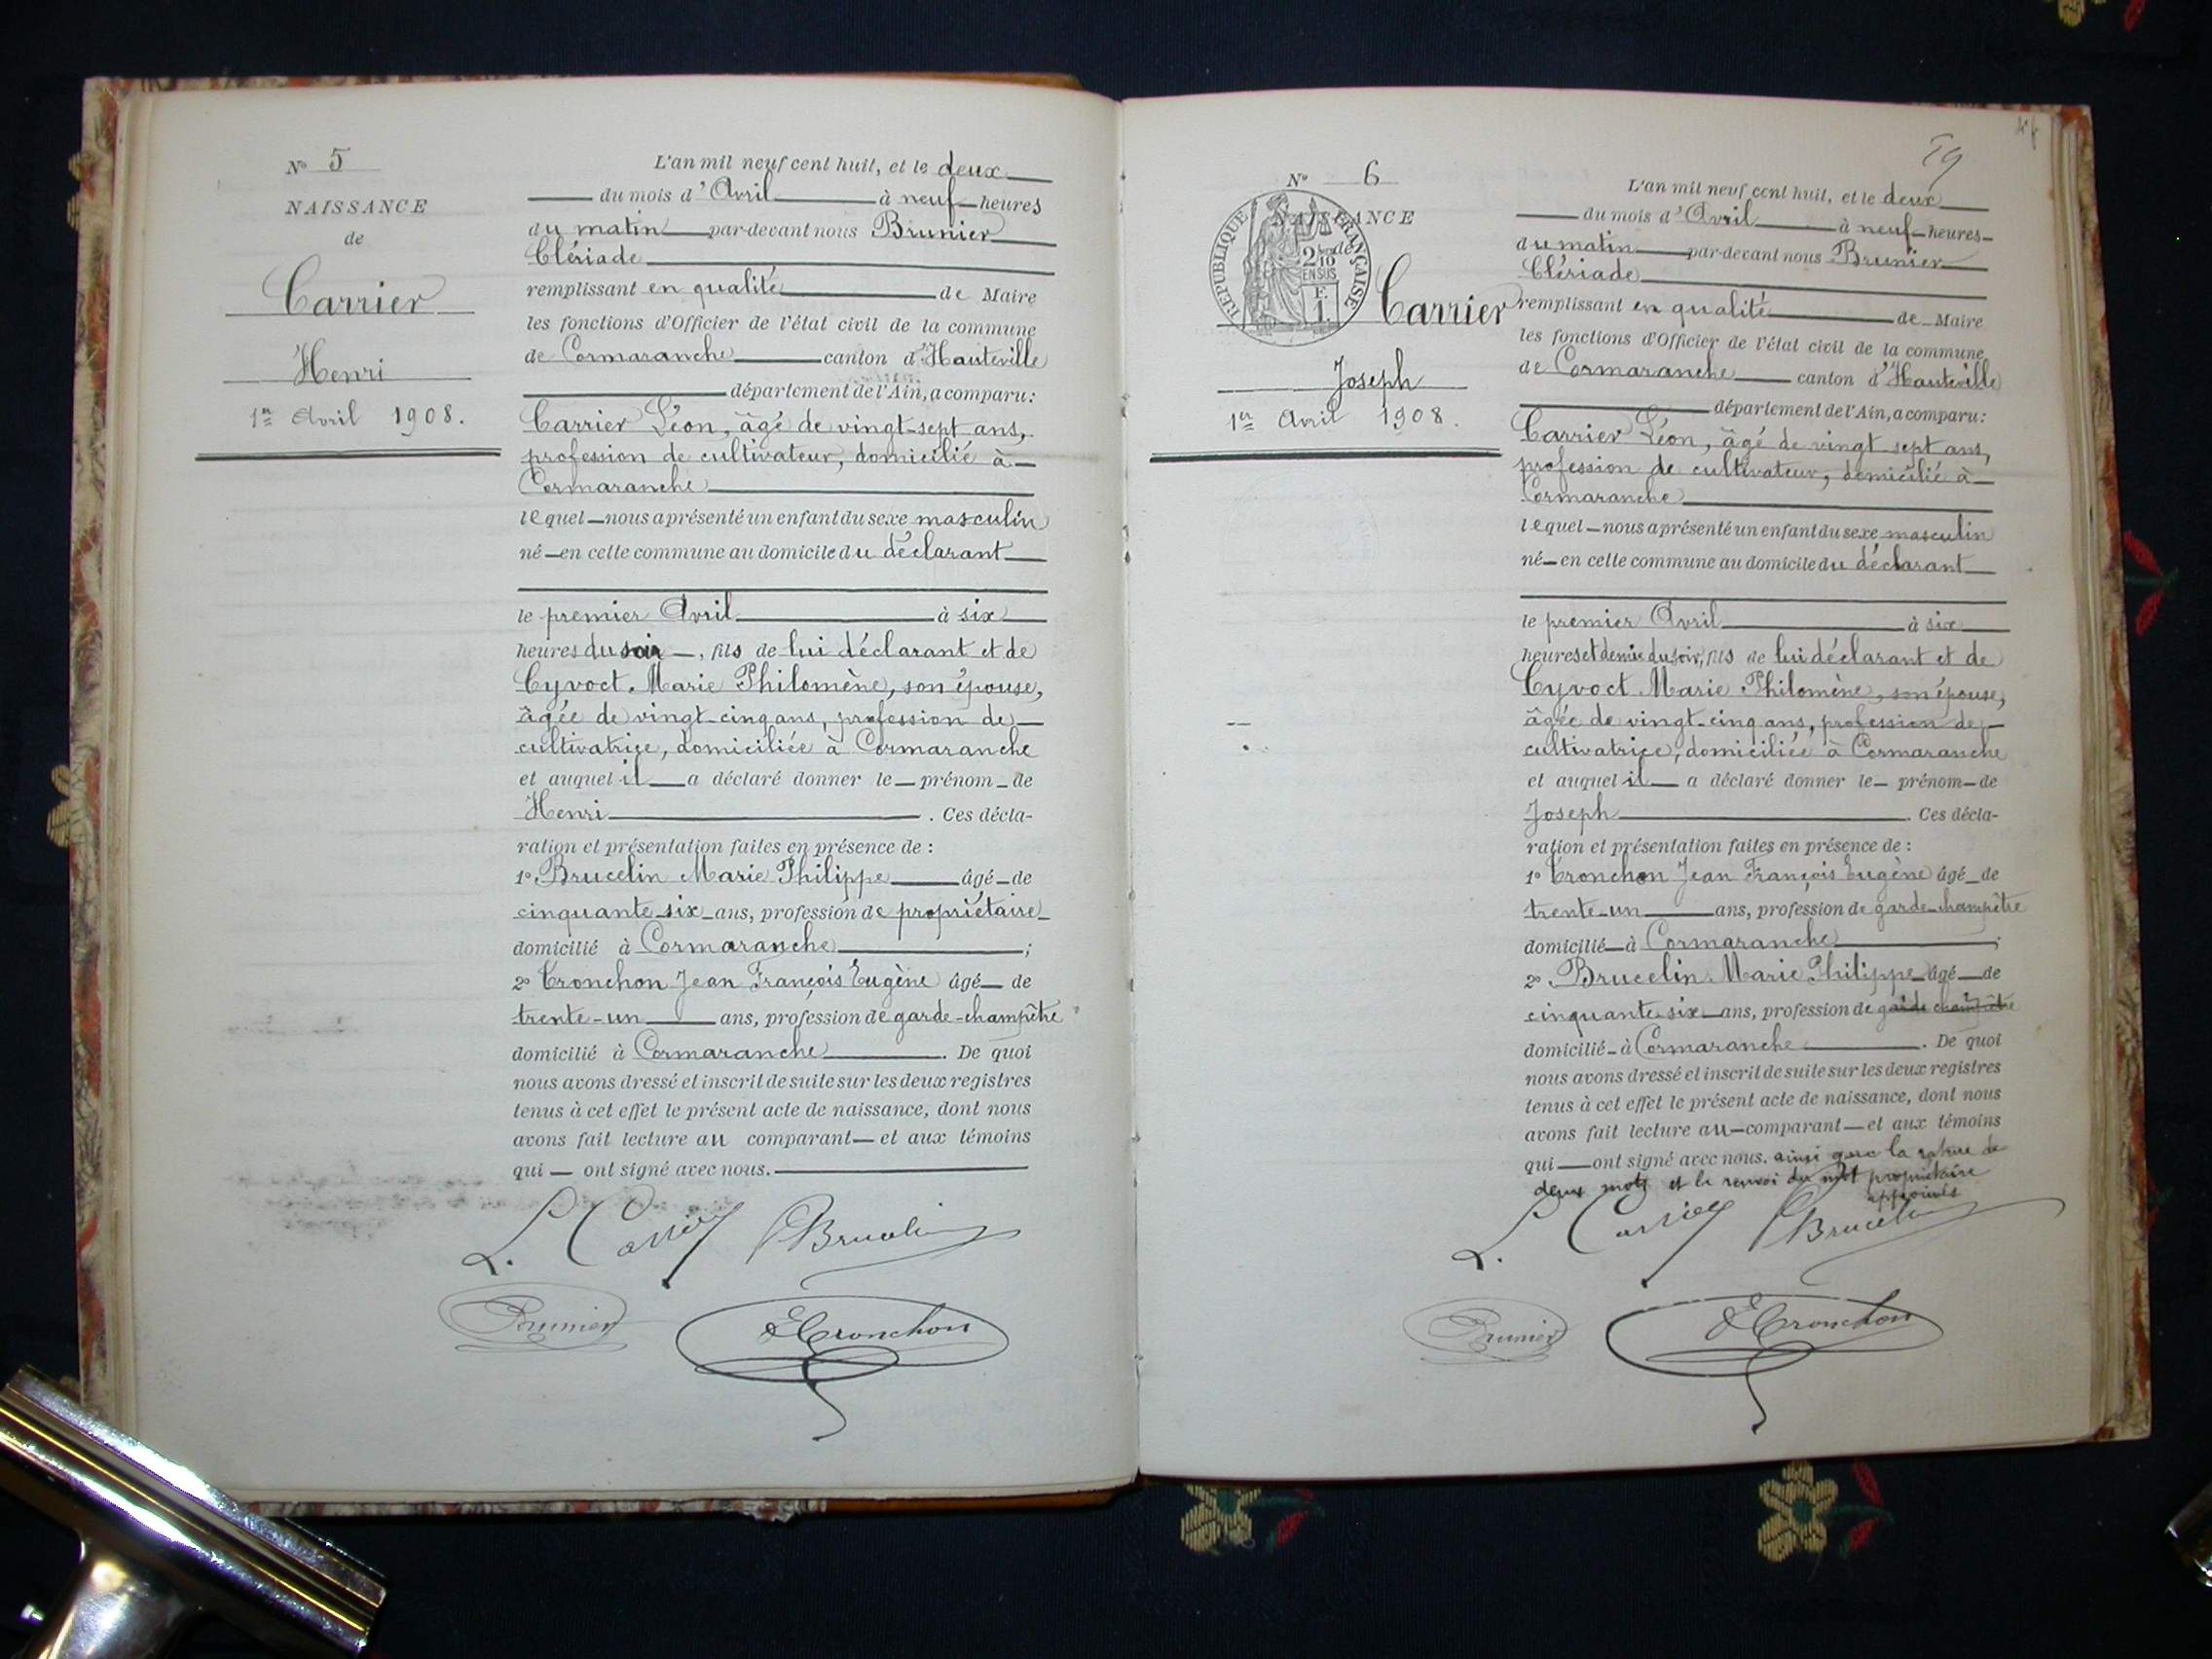 N° 5
NAISSANCE
de
Carrier
Henri
1er Avril 1908.
L'an mil neuf cent huit, et le deux
du mois d'Avril à neuf heures
du matin par-devant nous Brunier
Clériade
remplissant en qualité de Maire
les fonctions d'Officier de l'état civil de la commune
de Cormaranche canton d'Hauteville
département de l'Ain, a comparu:
Carrier Léon, âgé de vingt-sept ans,
profession de cultivateur, domicilié à
Cormaranche
lequel nous a présenté un enfant du sexe masculin
né en cette commune au domicile du déclarant
le premier Avril à six
heures du soir, fils de lui déclarant et de
Cyvoct. Marie Philomène, son épouse,
âgée de vingt-cinq ans, profession de
cultivatrice, domiciliée à Cormaranche
et auquel il a déclaré donner le prénom de
Henri. Ces décla-
ration et présentation faites en présence de :
1° Brucelin Marie Philippe âgé de
cinquante-six ans, profession de propriétaire
domicilié à Cormaranche ;
2° Tronchon Jean François Eugène âgé de
trente-un ans, profession de garde-champêtre
domicilié à Cormaranche. De quoi
nous avons dressé et inscrit de suite sur les deux registres
tenus à cet effet le présent acte de naissance, dont nous
avons fait lecture au comparant et aux témoins
qui ont signé avec nous.
L. Carrier Brucelin
Brunier ETronchon
19
N° 6
NAISSANCE
de
RÉPUBLIQUE FRANÇAISE
2/10
EN SUS
F.
1.
Carrier
Joseph
1er Avril 1908.
L'an mil neuf cent huit, et le deux
du mois d'Avril à neuf heures
du matin par-devant nous Brunier
Clériade
remplissant en qualité de Maire
les fonctions d'Officier de l'état civil de la commune
de Cormaranche canton d'Hauteville
département de l'Ain, a comparu:
Carrier Léon, âgé de vingt sept ans,
profession de cultivateur, domicilié à
Cormaranche
lequel nous a présenté un enfant du sexe masculin
né en cette commune au domicile du déclarant
le premier Avril à six
heures et demie du soir, fils de lui déclarant et de
Cyvoct Marie Philomène, son épouse,
âgée de vingt-cinq ans, profession de
cultivatrice, domiciliée à Cormaranche
et auquel il a déclaré donner le prénom de
Joseph. Ces décla-
ration et présentation faites en présence de :
1° Tronchon Jean François Eugène âgé de
trente-un ans, profession de garde-champêtre
domicilié à Cormaranche ;
2° Brucelin Marie Philippe âgé de
cinquante six ans, profession de garde champêtre
domicilié à Cormaranche. De quoi
nous avons dressé et inscrit de suite sur les deux registres
tenus à cet effet le présent acte de naissance, dont nous
avons fait lecture au comparant et aux témoins
qui ont signé avec nous. ainsi que la rature de
deux mots et le renvoi du mot propriétaire
approuvés
L. Carrier Brucelin
Brunier ETronchon